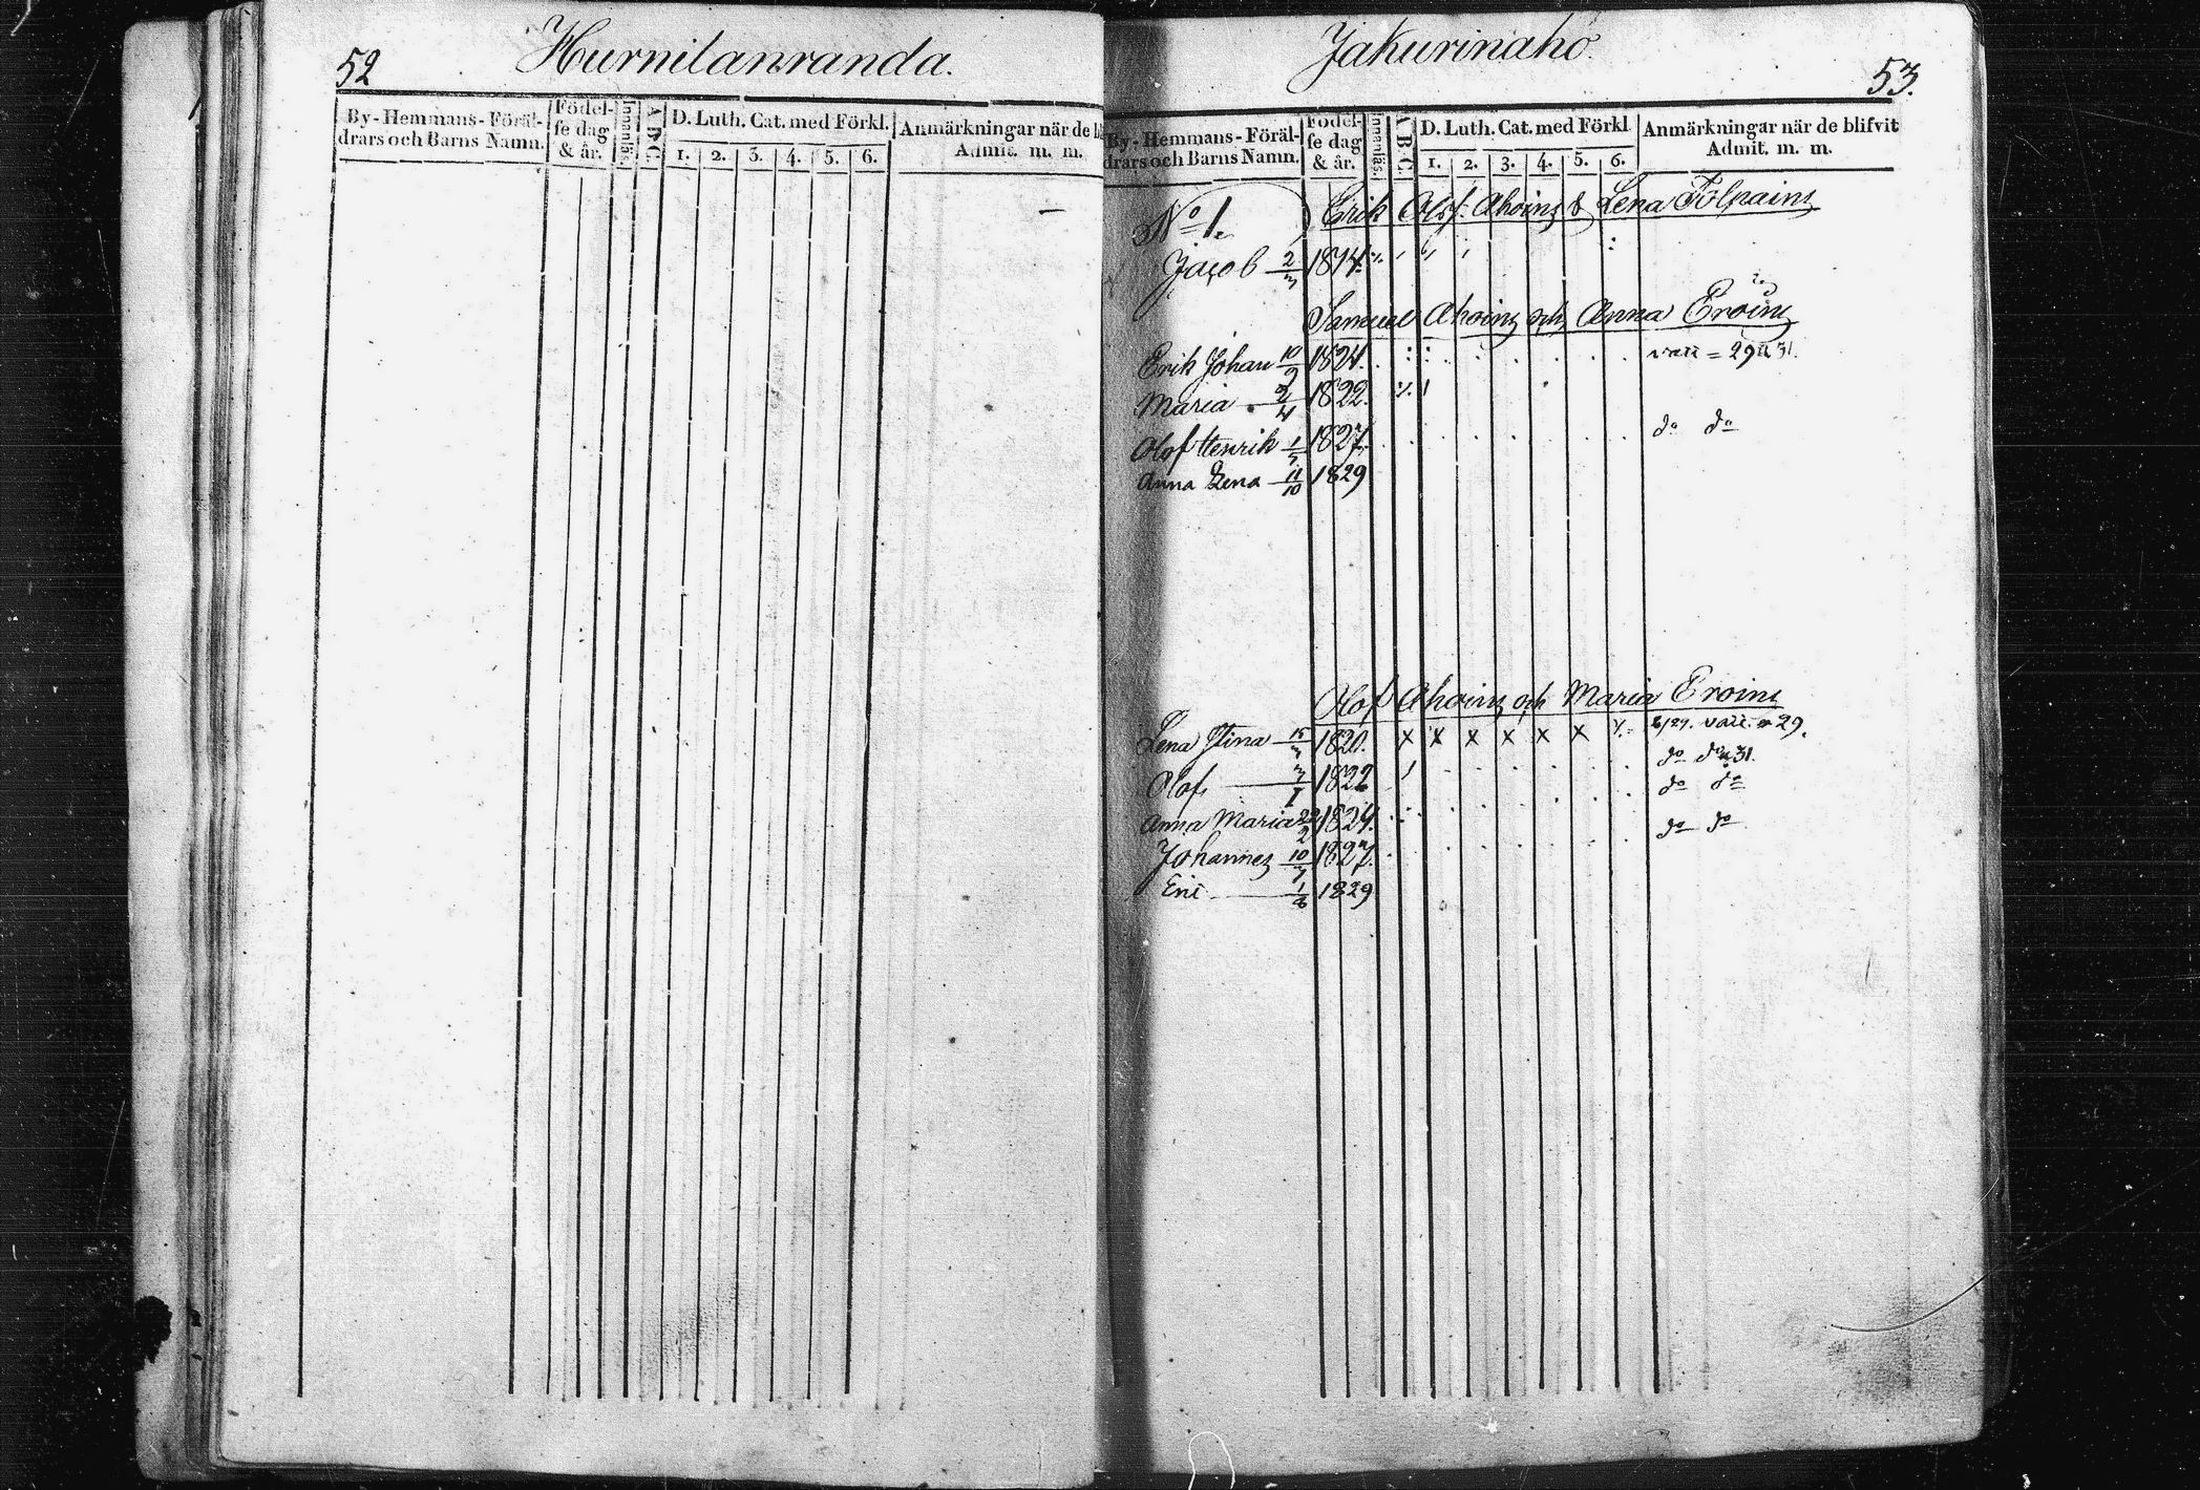 52
Hurnilanranda.
By-Hemmans-Föräl-
drars och Barns Namn.
Födel-
se dag
& år.
Innanläs.
A.B.C.
D. Luth. Cat. med Förkl.
1. 2. 3. 4. 5. 6.
Anmärkningar när de bl
Admit. m. m.
Jakurinaho
53.
By-Hemmans-Föräl-
drars och Barns Namn.
Födel-
se dag
& år.
Innanläs.
A.B.C.
D. Luth. Cat. med Förkl
1. 2. 3. 4. 5. 6.
Anmärkningar när de blifvit
Admit. m. m.
No 1. Erik Olof. Ahoinz & Lena Tolpainz
Jacob 2/3 1814.
Samuel Ahoinz och Anna Eroinz
Erik Johan 10/9 1824. 29 31.
Maria 2/4 1822.
Olof Henrik 1827. do do
Anna Lena 11/10 1829
Olof Ahoinz och Maria Eroinz
Lena Stina 15/3 1820. x x x x x x 29.
Olof 3/1 1822 do do 31.
Anna Maria 22/2 1824. do do
Johannes 10/7 1827. do do
Eric 1/8 1829